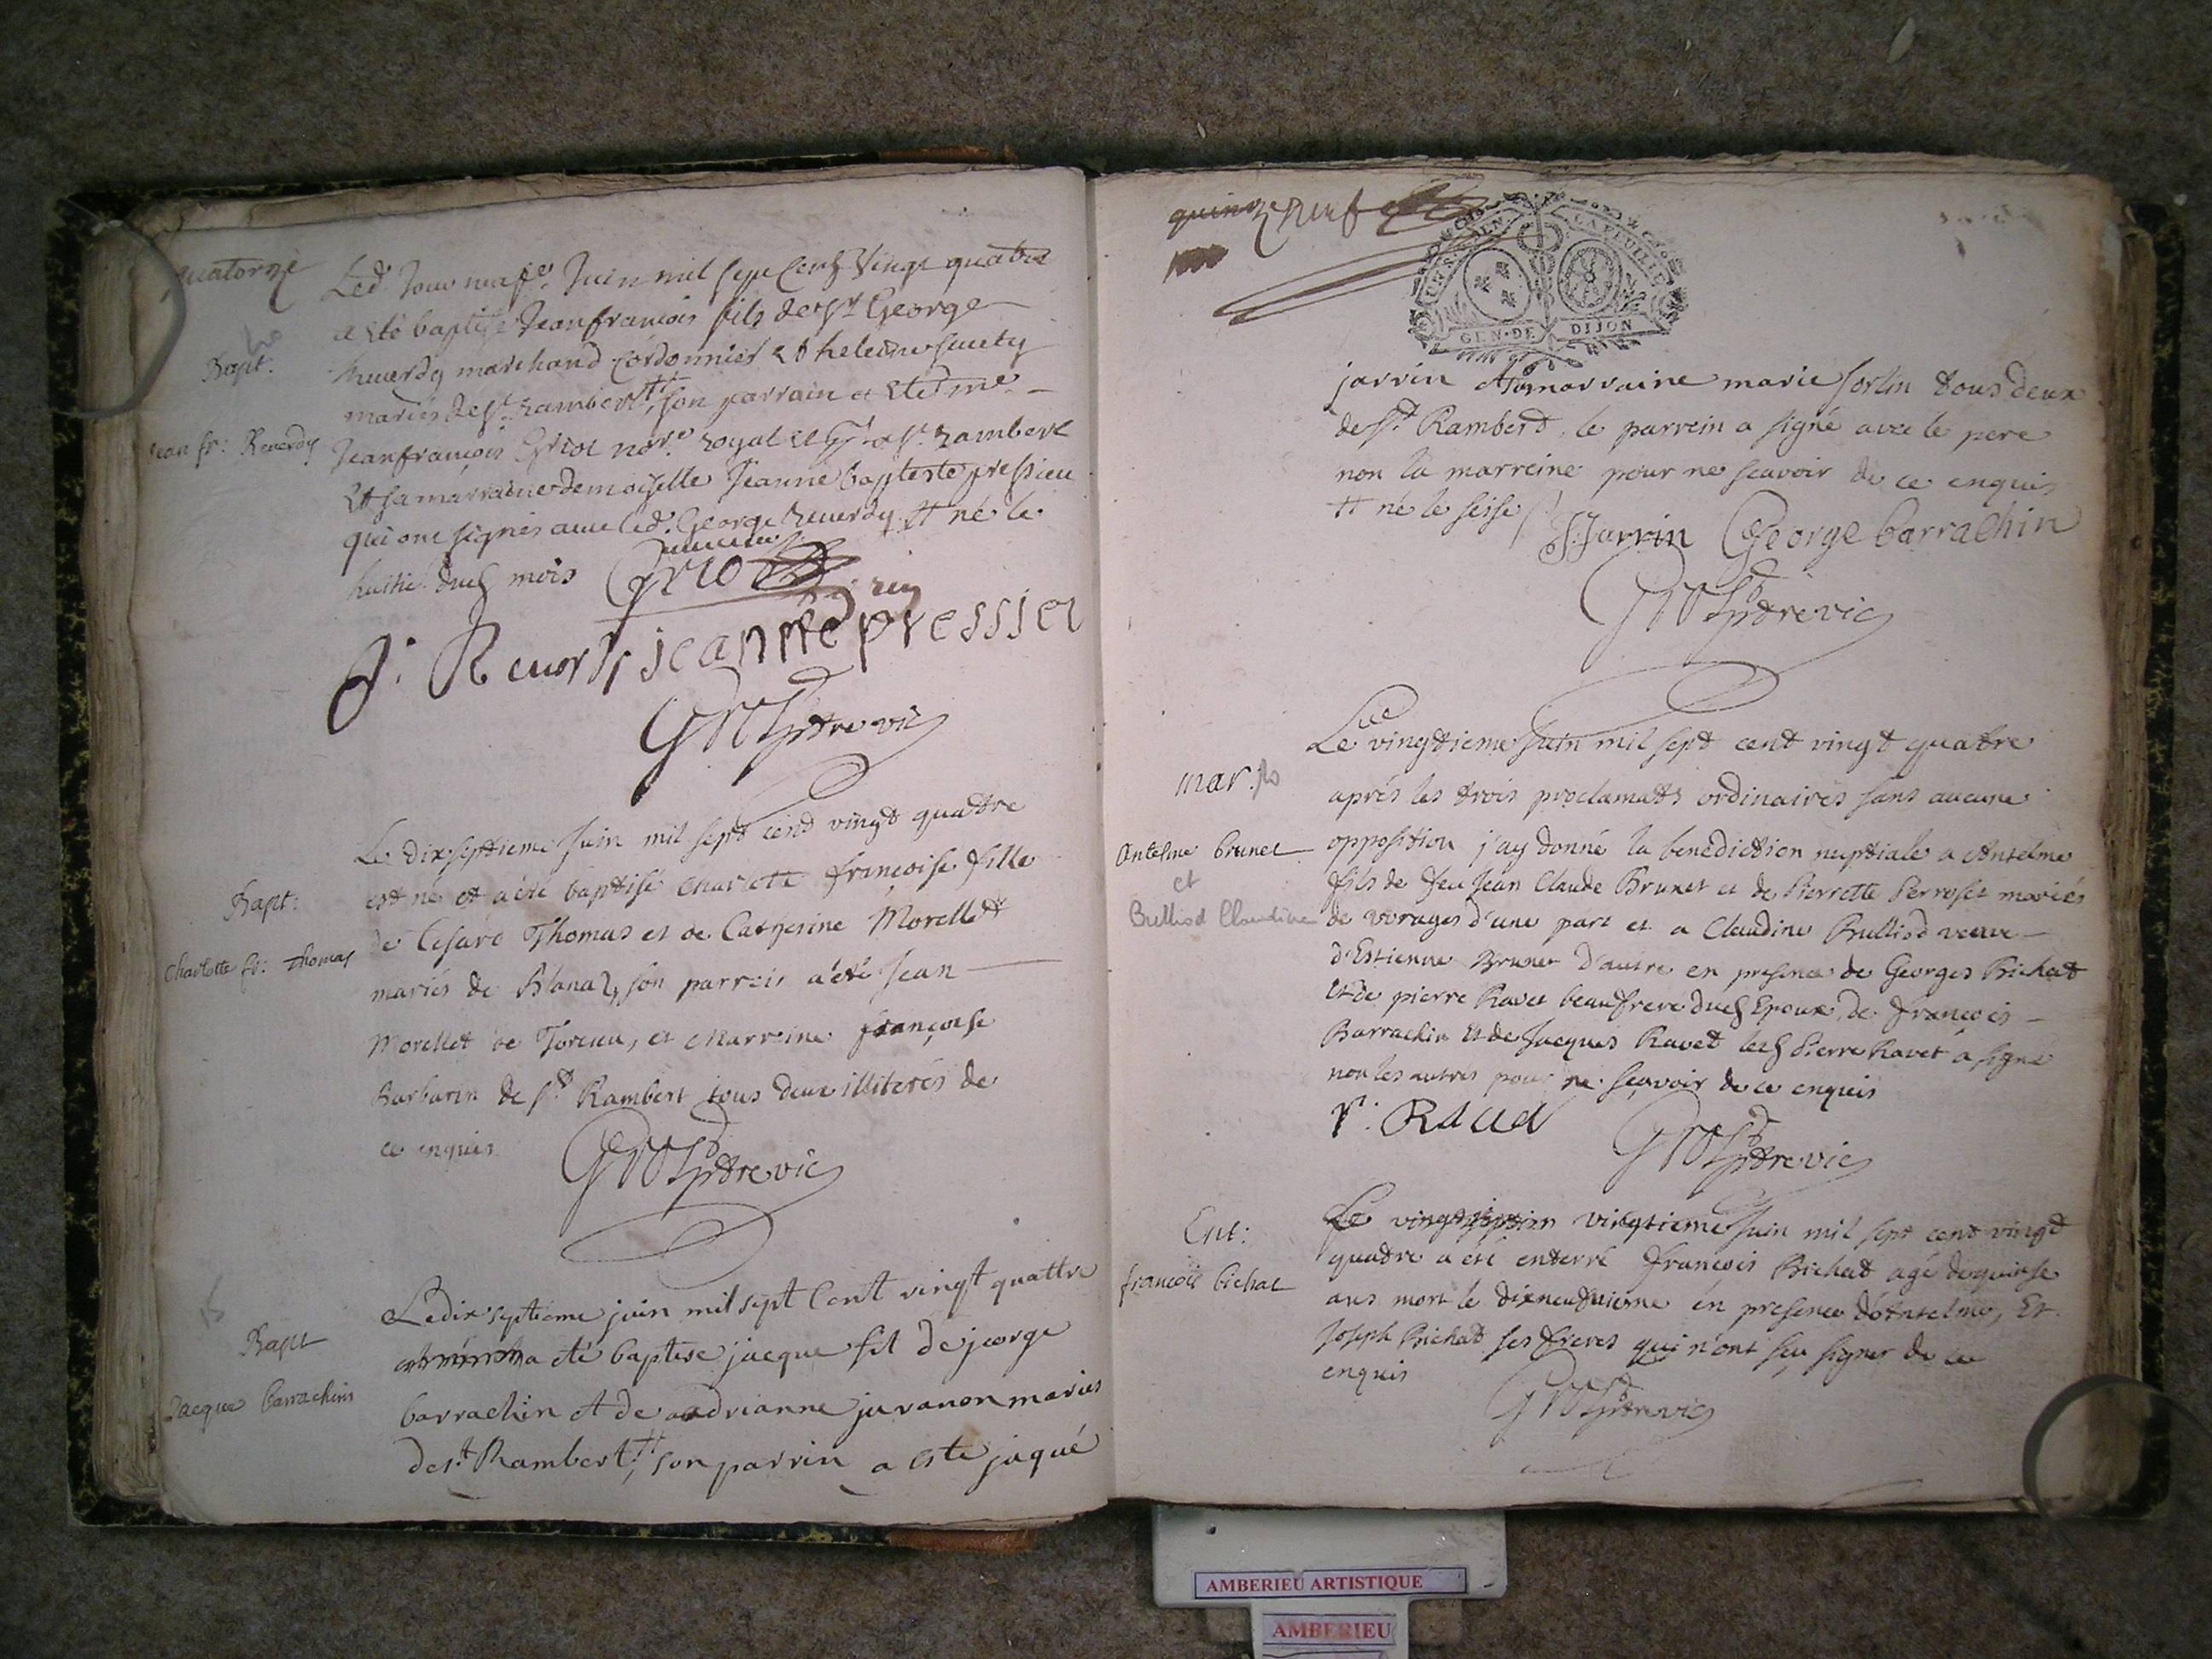 quatorze
Led. Jour neuf.e Juin mil sept Cents vingt quatre
a Eté baptise Jean francois fils de Sr George
Reuerdy marchand Cordonnier Et heleine
mariés de St. Rambert, son parrain a Eté me.
Jean francois Griot nore. royal a St. rambert
Et sa marraine demoiselle Jeanne baptiste pressieu
qui ont signés avec led. George Reuerdy. ++ né le
huitie. dud mois
Bapt:
Jean fr: Reuerdy
Griot
J. Reuerdy jeanne pressieu
ptre vic
Le dix septieme Juin mil sept cent vingt quatre
est né et a été baptisé Charlotte francoise fille
de Cesard Thomas et de Catherine Morellet
mariés de Blanaz, son parrein a été Jean
Morellet de Torcieu, et Marreine francoise
Barbarin de St Rambert tous deux illiterés de
ce enquis
Bapt:
Charlotte fr: thomas
ptre vic
Le dix septieme juin mil sept Cent vingt quattre
a eté baptese jacque fil de jeorge
barrachin et de adrianne juvanon maries
de st Rambert ++, son parrin a este jaqué
Bapt
Jacque barrachin
quinze neuf
GEN·DE DIJON
jarrin et sa marraine marie sorlin tous deux
de St. Rambert, le parrein a signé avec le pere
non la marreine pour ne scavoir de ce enquis
++ né le seise
J. Jarrin George barrachin
ptre vic
Le vingtieme Juin mil sept cent vingt quatre
aprés les trois proclamats ordinaires sans aucune
opposition j'ay donné la benediction nuptiale a Antelme
fils de feu Jean Claude Brunet et de Pierrette Perroset mariés
de vorages d'une part et a Claudine Bulliod veuve
d'Estienne Brunet d'autre en presence de Georges Bichat
Et de pierre Ravet beaufrere dud Epoux, de francois
Barrachin Et de Jacques Ravet led Pierre Ravet a signé
non les autres pour ne scavoir de ce enquis
mar:
Antelme brunet
et
Bulliod Claudine
ptre vic
Le vingtieme Juin mil sept cent vingt
quatre a été enterré francois Bichat agé de quinse
ans mort le dixneufvieme en presence d'Antelme, Et
Joseph Bichat ses freres qui n'ont sçu signer de ce
enquis
Ent:
francois bichat
ptre vic
AMBERIEU ARTISTIQUE
AMBERIEU